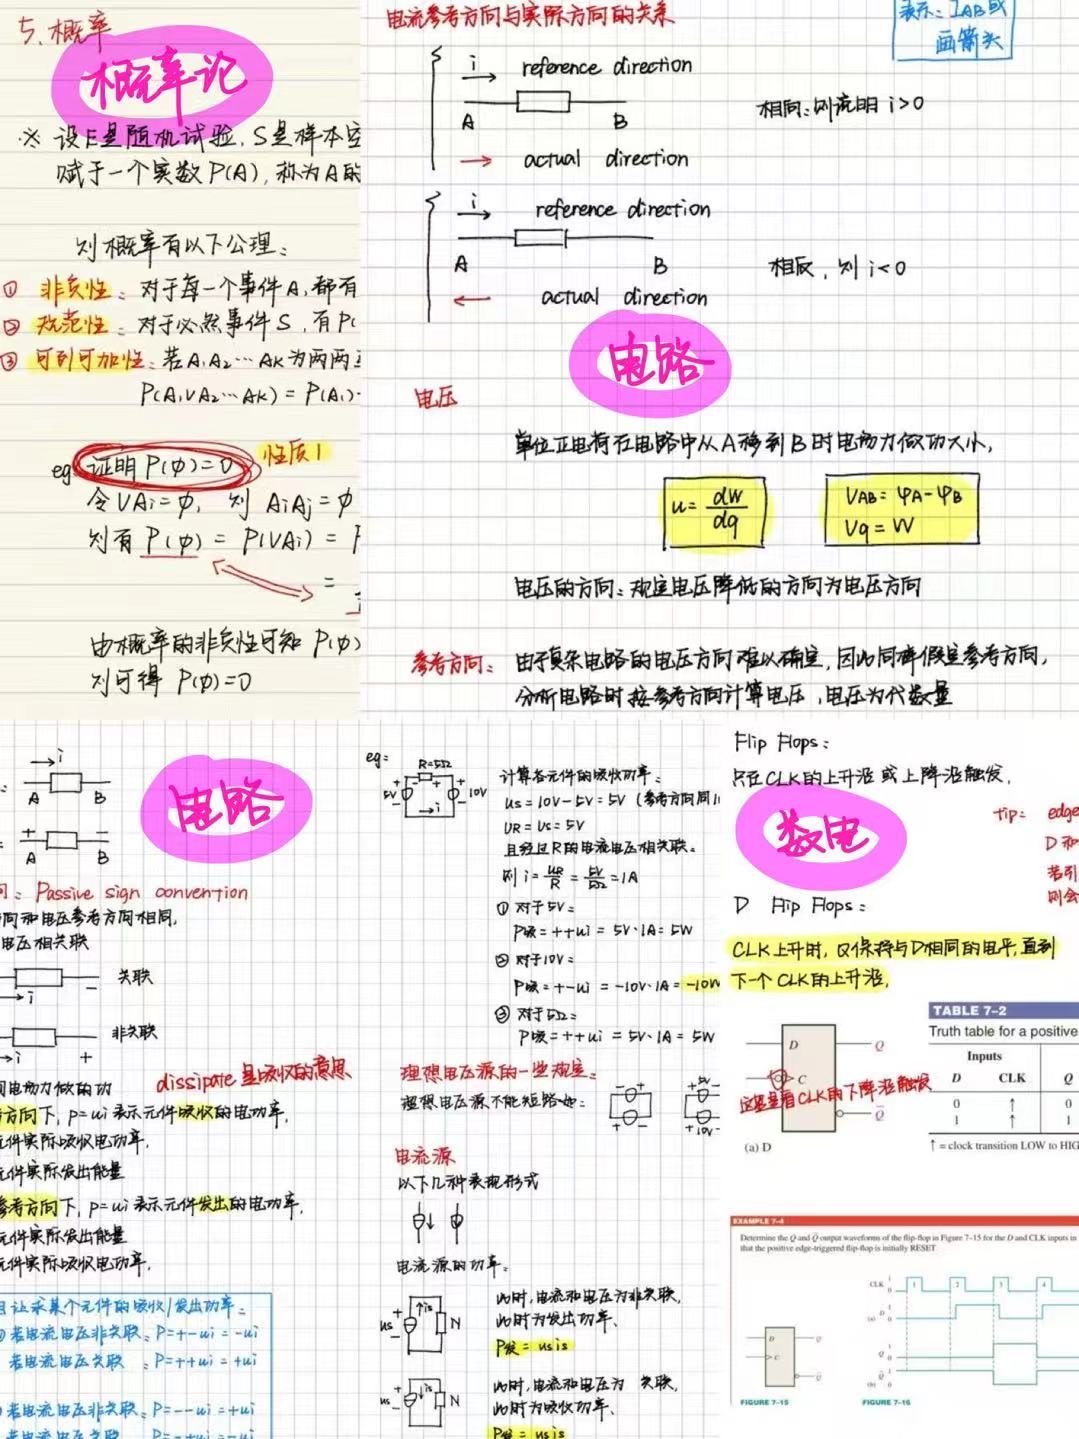 5. 概率
概率论
※ 设E是随机试验, S是样本空
赋于一个实数 P(A), 称为A的
则概率有以下公理:
① 非负性: 对于每一个事件A, 都有
② 规范性: 对于必然事件 S, 有 P(
③ 可列可加性: 若A₁A₂…AK为两两互
P(A₁∪A₂…AK) = P(A₁)·
eg. 证明 P(φ)=0 性质1
令∪Ai=φ, 则 AiAj=φ
则有 P(φ) = P(∪Ai) = P
=
由概率的非负性可知 P(φ)
则可得 P(φ)=0
电流参考方向与实际方向的关系
表示: IAB或
画箭头
i reference direction
A B
相同: 则说明 i>0
actual direction
i reference direction
A B
相反, 则 i<0
actual direction
电路
电压
单位正电荷在电路中从A移到B时电动力做功大小,
u = dw/dq
VAB = φA-φB
Vq = W
电压的方向: 规定电压降低的方向为电压方向
参考方向: 由于复杂电路的电压方向难以确定, 因此同样假定参考方向,
分析电路时按参考方向计算电压, 电压为代数量
i
A B
电路
+ −
A B
: Passive sign convention
同和电压参考方向相同,
电压相关联
− 关联
i
非关联
i +
电动力做的功
dissipate是吸收的意思
方向下, p=ui 表示元件吸收的电功率,
元件实际吸收电功率,
元件实际发出能量
参考方向下, p=ui 表示元件发出的电功率,
元件实际发出能量
元件实际吸收电功率,
让求某个元件的吸收/发出功率:
若电流电压非关联: P=+−ui=−ui
若电流电压关联: P=++ui=+ui
若电流电压非关联: P=−−ui=+ui
eg:
R=5Ω
5V 10V
i
计算各元件的吸收功率:
us = 10V−5V = 5V (参考方向同
UR = Us = 5V
且经过R的电流电压相关联:
则 i = UR/R = 5V/5Ω = 1A
① 对于5V:
P吸 = ++ui = 5V·1A = 5W
② 对于10V:
P吸 = +−ui = −10V·1A = −10W
③ 对于5Ω:
P吸 = ++ui = 5V·1A = 5W
理想电压源的一些规定:
理想电压源不能短路
5V
10V
电流源
以下几种表现形式
电流源的功率:
us is N
此时, 电流和电压为非关联,
此时为发出功率,
P发 = usis
us is N
此时, 电流和电压为 关联,
此时为吸收功率,
P吸 = usis
Flip Flops:
只在CLK的上升沿 或 上降沿触发,
数电
tip: edge
D 和
若引
则会
D Flip Flops:
CLK上升时, Q保持与D相同的电平, 直到
下一个CLK的上升沿,
TABLE 7–2
Truth table for a positive
Inputs
D CLK Q
0 ↑ 0
1 ↑ 1
↑ = clock transition LOW to HIG
D Q
C
Q̄
这里是看CLK的下降沿触发
(a) D
EXAMPLE 7–4
Determine the Q and Q̄ output waveforms of the flip-flop in Figure 7–15 for the D and CLK inputs in
that the positive edge-triggered flip-flop is initially RESET
D Q
C
Q̄
FIGURE 7–15
CLK 1 0 1 2 3 4
(a) D 1 0
Q 1 0
(b) Q̄ 1 0
FIGURE 7–16